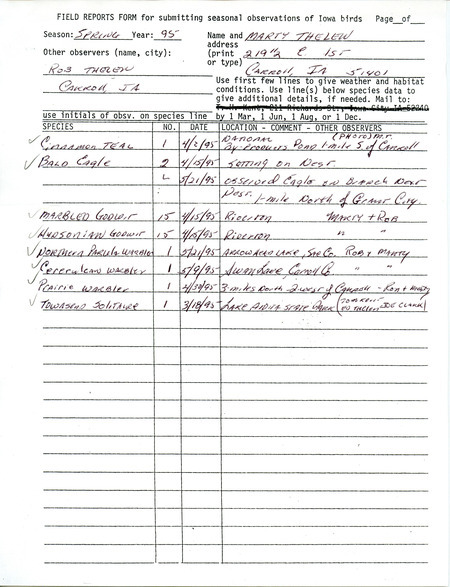 FIELD REPORTS FORM for submitting seasonal observations of Iowa birds Page__of__
Season: SPRING Year: 95 Name and MARTY THELEN
address
Other observers (name, city): (print 219½ E. 1st
or type)
ROB THELEN CARROLL, IA 51401
CARROLL, IA Use first few lines to give weather and habitat
conditions. Use line(s) below species data to
give additional details, if needed. Mail to:
T. H. Kent, 211 Richards St., Iowa City, IA 52240
use initials of obsv. on species line by 1 Mar, 1 Jun, 1 Aug, or 1 Dec.
SPECIES NO. DATE LOCATION - COMMENT - OTHER OBSERVERS
NATIONAL (PHOTO)
CINNAMON TEAL 1 4/2/95 By-PRODUCTS POND 1 mile S. of CARROLL
BALD EAGLE 2 4/15/95 SETTING ON NEST
5/21/95 OBSERVED EAGLE ON BRANCH NEAR
NEST. 1-mile North of GRANT CITY.
MARBLED GODWIT 15 4/15/95 RIVERTON MARTY + ROB
HUDSONIAN GODWIT 15 4/15/95 RIVERTON " "
NORTHERN PARULA WARBLER 1 5/21/95 ARROWHEAD LAKE, SAC CO. ROB & MARTY
CERULEAN WARBLER 1 5/9/95 SWAN LAKE CARROLL CO. " "
PRAIRIE WARBLER 1 4/30/95 3 miles North 2 west of CARROLL - ROB + MARTY
TOWNSEND SOLITAIRE 1 3/18/95 LAKE AHQUABI STATE PARK (TOM KENT ED THELEN JOE CLARK)